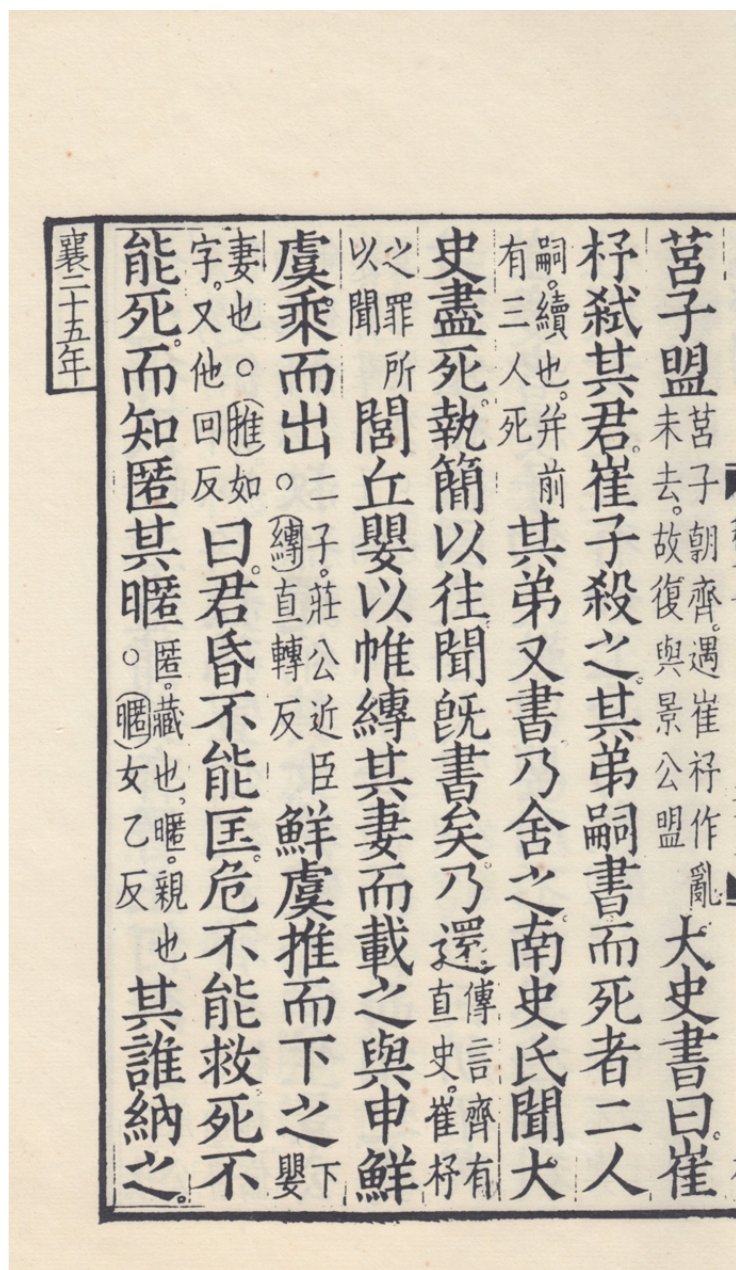 莒子盟莒子朝齊。遇崔杼作亂未去。故復與景公盟大史書曰。崔
杼弑其君。崔子殺之。其弟嗣書而死者二人
嗣。續也。并前有三人死其弟又書乃舍之。南史氏聞大
史盡死。執簡以往。聞旣書矣。乃還。傳言齊有直史。崔杼
之罪所以聞閭丘嬰以帷縳其妻而載之與申鮮
虞乘而出二子。莊公近臣○縳直轉反鮮虞推而下之下嬰
妻也○推如字。又他回反曰。君昏不能匡。危不能救死不
能死。而知匿其暱匿。藏也。暱。親也○暱女乙反其誰納之。
襄二十五年